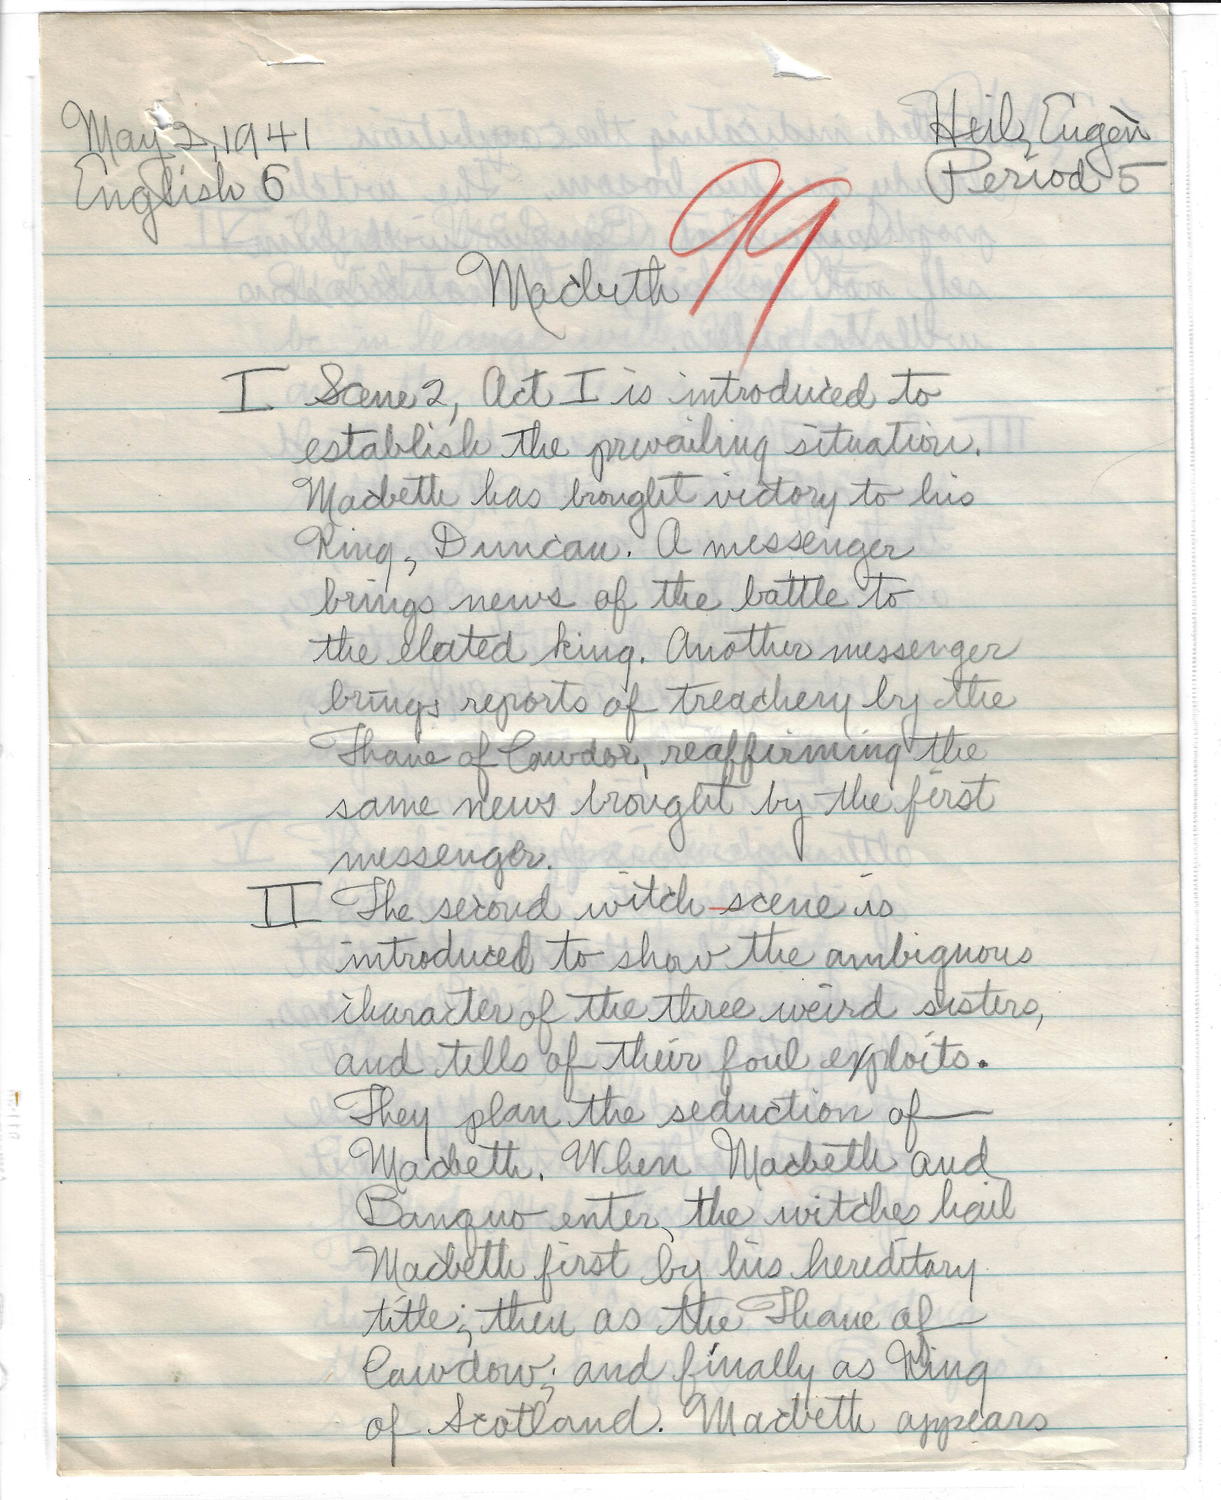 May 2, 1941
Heil, Eugen
English 6
Period 5
99
Macbeth
I Scene 2, Act I is introduced to
establish the prevailing situation.
Macbeth has brought victory to his
King, Duncan. A messenger
brings news of the battle to
the elated king. Another messenger
brings reports of treachery by the
Thane of Cawdor, reaffirming the
same news brought by the first
messenger.
II The second witch-scene is
introduced to show the ambiguous
character of the three weird sisters,
and tells of their foul exploits.
They plan the seduction of
Macbeth. When Macbeth and
Banquo enter, the witches hail
Macbeth first by his hereditary
title; then as the Thane of
Cawdow; and finally as King
of Scotland. Macbeth appears